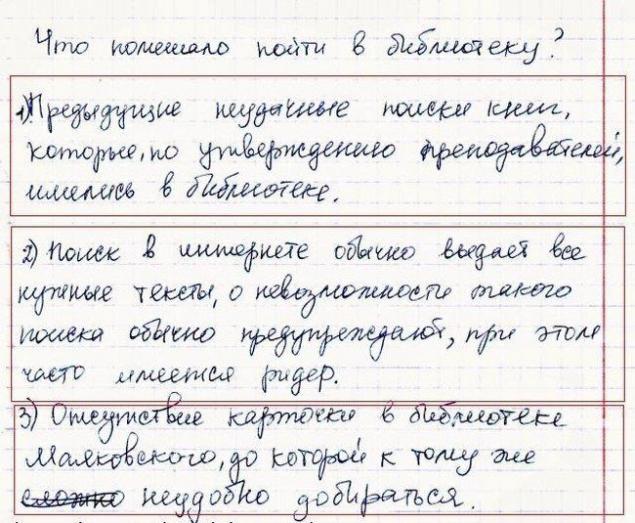 Что помешало пойти в библиотеку?
1) Предыдущие неудачные поиски книг,
которые, по утверждению преподавателей,
имелись в библиотеке.
2) Поиск в интернете обычно выдает все
нужные тексты, о невозможности такого
поиска обычно предупреждают, при этом
часто имеется ридер.
3) Отсутствие карточки в библиотеке
Маяковского, до которой к тому же
сложно неудобно добираться.